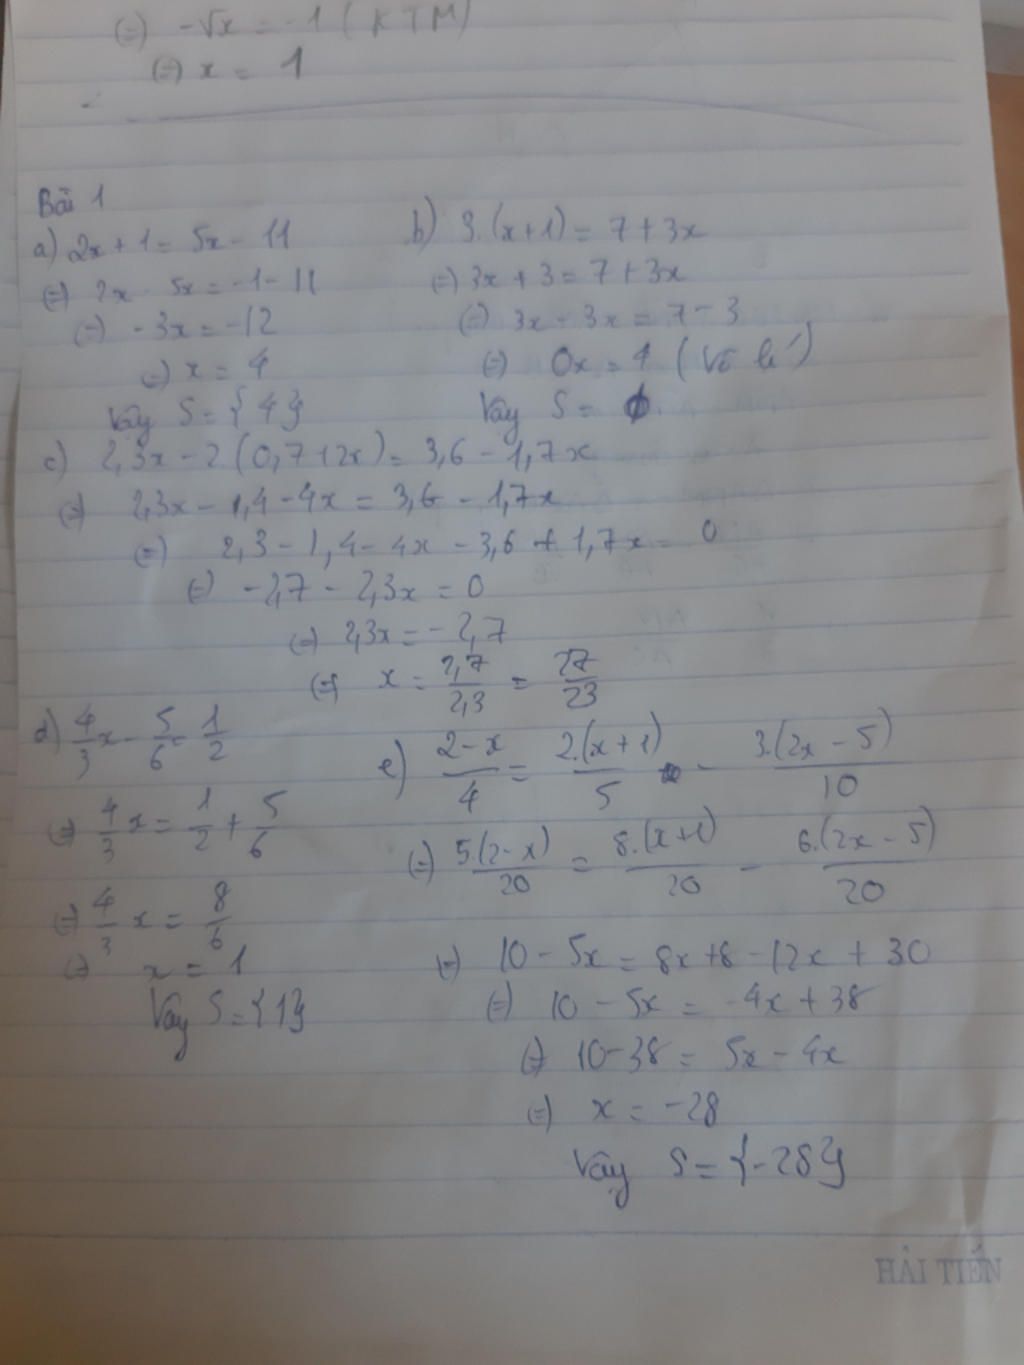 (=) -√x = -1 (KTM)
(=) x = 1
Bài 1
a) 2x + 1 = 5x - 11
(=) 2x - 5x = -1 - 11
(=) -3x = -12
(=) x = 4
Vậy S = {4}
b) 3.(x+1) = 7 + 3x
(=) 3x + 3 = 7 + 3x
(=) 3x - 3x = 7 - 3
(=) 0x = 4 (Vô lí)
Vậy S = ϕ
c) 2,3x - 2(0,7+2x) = 3,6 - 1,7x
(=) 2,3x - 1,4 - 4x = 3,6 - 1,7x
(=) 2,3 - 1,4 - 4x - 3,6 + 1,7x = 0
(=) -2,7 - 2,3x = 0
(=) 2,3x = -2,7
(=) x = 2,7/2,3 = 27/23
d) 4/3 x - 5/6 = 1/2
(=) 4/3 x = 1/2 + 5/6
(=) 4/3 x = 8/6
(=) x = 1
Vậy S = {1}
e) 2-x/4 = 2.(x+1)/5 - 3.(2x-5)/10
(=) 5.(2-x)/20 = 8.(x+1)/20 - 6.(2x-5)/20
(=) 10 - 5x = 8x + 8 - 12x + 30
(=) 10 - 5x = -4x + 38
(=) 10 - 38 = 5x - 4x
(=) x = -28
Vậy S = {-28}
HẢI TIẾN